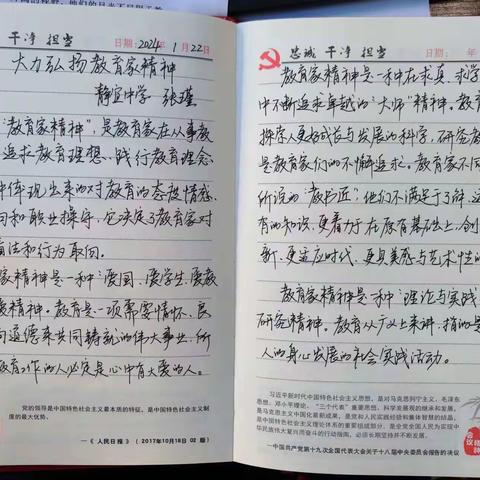 干净 担当
日期: 2024年1月22日
大力弘扬教育家精神
静宜中学 张瑾
"教育家精神",是教育家在从事教
追求教育理想、践行教育理念
中体现出来的对教育的态度、情感、
和职业操守,它决定了教育家对
法和行为取向。
家精神是一种"爱国、爱学生、爱教
爱精神。教育是一项需要情怀、良
道德来共同铸就的伟大事业,所
教育工作的人必定是心中有大爱的人。
党的领导是中国特色社会主义最本质的特征,是中国特色社会主义制
度的最大优势。
—《人民日报》(2017年10月18日 02版)
忠诚 干净 担当
日期: 年
教育家精神是一种在求真、求学
中不断追求卓越的"大师"精神。教育
探学人更好成长与发展的科学,研答教
是教育家们的不懈追求。教育家不同
所说的"教书匠":他们不满足于了解、这
有的知识,更着力于在原有基础上,创
新、更适应时代、更具美感与艺术性的
教育家精神是一种"理论与实践
研究精神。教育从广义上来讲,指的是
人的身心发展的社会实践活动。
习近平新时代中国特色社会主义思想,是对马克思列宁主义、毛泽东
思想、邓小平理论、"三个代表"重要思想、科学发展观的继承和发展,
是马克思主义中国化最新成果,是党和人民实践经验和集体智慧的结晶,
是中国特色社会主义理论体系的重要组成部分,是全党全国人民为实现中
华民族伟大复兴而奋斗的行动指南,必须长期坚持并不断发展。
—中国共产党第十九次全国代表大会关于十八届中央委员会报告的决议